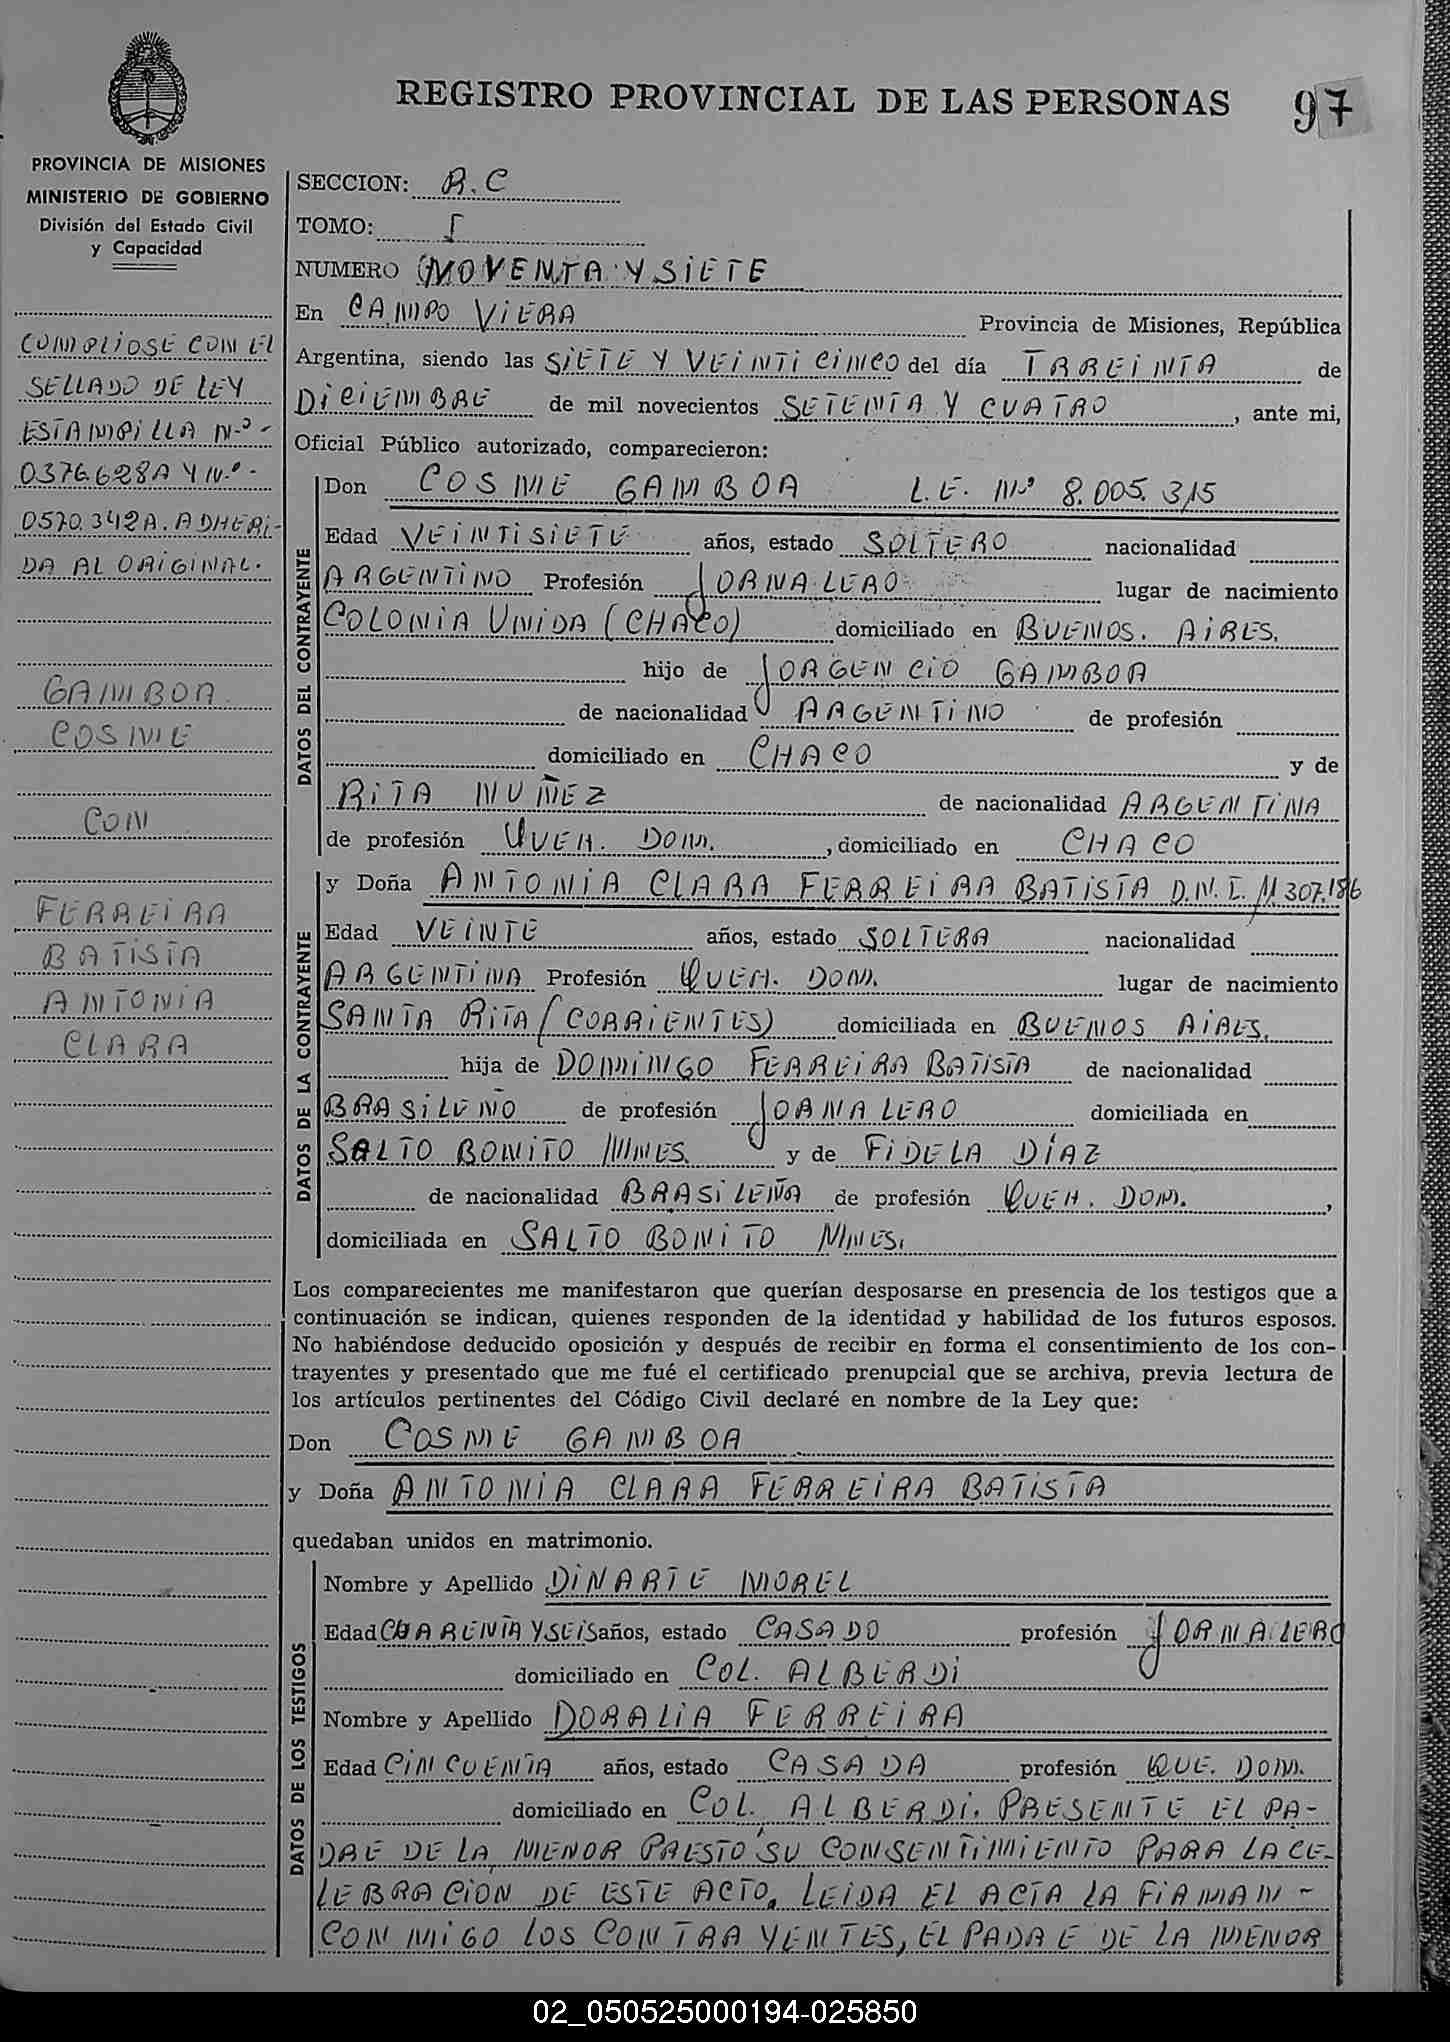 REGISTRO PROVINCIAL DE LAS PERSONAS 97
PROVINCIA DE MISIONES
MINISTERIO DE GOBIERNO
División del Estado Civil
y Capacidad
CUMPLIOSE CON EL
SELLADO DE LEY
ESTAMPILLA Nº -
0376.628A Y Nº -
0570.342A. ADHERI-
DA AL ORIGINAL.
GAMBOA
COSME
CON
FERREIRA
BATISTA
ANTONIA
CLARA
SECCION: R.C
TOMO: I
NUMERO NOVENTA Y SIETE
En CAMPO VIERA Provincia de Misiones, República
Argentina, siendo las SIETE Y VEINTI CINCO del día TRREINTA de
DICIEMBRE de mil novecientos SETENTA Y CUATRO, ante mi,
Oficial Público autorizado, comparecieron:
DATOS DEL CONTRAYENTE
Don COSME GAMBOA L.E. Nº 8.005.315
Edad VEINTISIETE años, estado SOLTERO nacionalidad
ARGENTINO Profesión JORNALERO lugar de nacimiento
COLONIA UNIDA (CHACO) domiciliado en BUENOS. AIRES.
hijo de JORGENCIO GAMBOA
de nacionalidad ARGENTINO de profesión
domiciliado en CHACO y de
RITA NUÑEZ de nacionalidad ARGENTINA
de profesión QUEH. DOM. , domiciliado en CHACO
DATOS DE LA CONTRAYENTE
y Doña ANTONIA CLARA FERREIRA BATISTA D.N.I. 11.307.186
Edad VEINTE años, estado SOLTERA nacionalidad
ARGENTINA Profesión QUEH. DOM. lugar de nacimiento
SANTA RITA (CORRIENTES) domiciliada en BUENOS AIRES.
hija de DOMINGO FERREIRA BATISTA de nacionalidad
BRASILEÑO de profesión JORNALERO domiciliada en
SALTO BONITO MNES. y de FIDELA DÍAZ
de nacionalidad BRASILEÑA de profesión QUEH. DOM.,
domiciliada en SALTO BONITO MNES.
Los comparecientes me manifestaron que querían desposarse en presencia de los testigos que a
continuación se indican, quienes responden de la identidad y habilidad de los futuros esposos.
No habiéndose deducido oposición y después de recibir en forma el consentimiento de los con-
trayentes y presentado que me fué el certificado prenupcial que se archiva, previa lectura de
los artículos pertinentes del Código Civil declaré en nombre de la Ley que:
Don COSME GAMBOA
y Doña ANTONIA CLARA FERREIRA BATISTA
quedaban unidos en matrimonio.
DATOS DE LOS TESTIGOS
Nombre y Apellido DINARTE MOREL
Edad CUARENTA Y SEIS años, estado CASADO profesión JORNALERO
domiciliado en COL. ALBERDI
Nombre y Apellido DORALIA FERREIRA
Edad CINCUENTA años, estado CASADA profesión QUE. DOM.
domiciliado en COL. ALBERDI. PRESENTE EL PA-
DRE DE LA MENOR PRESTO SU CONSENTIMIENTO PARA LA CE-
LEBRACION DE ESTE ACTO. LEIDA EL ACTA LA FIRMAN -
CONMIGO LOS CONTRAYENTES, EL PADRE DE LA MENOR
02_050525000194-025850